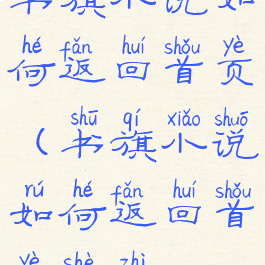 书旗小说如
hé fǎn huí shǒu yè
何返回首页
shū qí xiǎo shuō
（书旗小说
rú hé fǎn huí shǒu
如何返回首
yè shè zhì